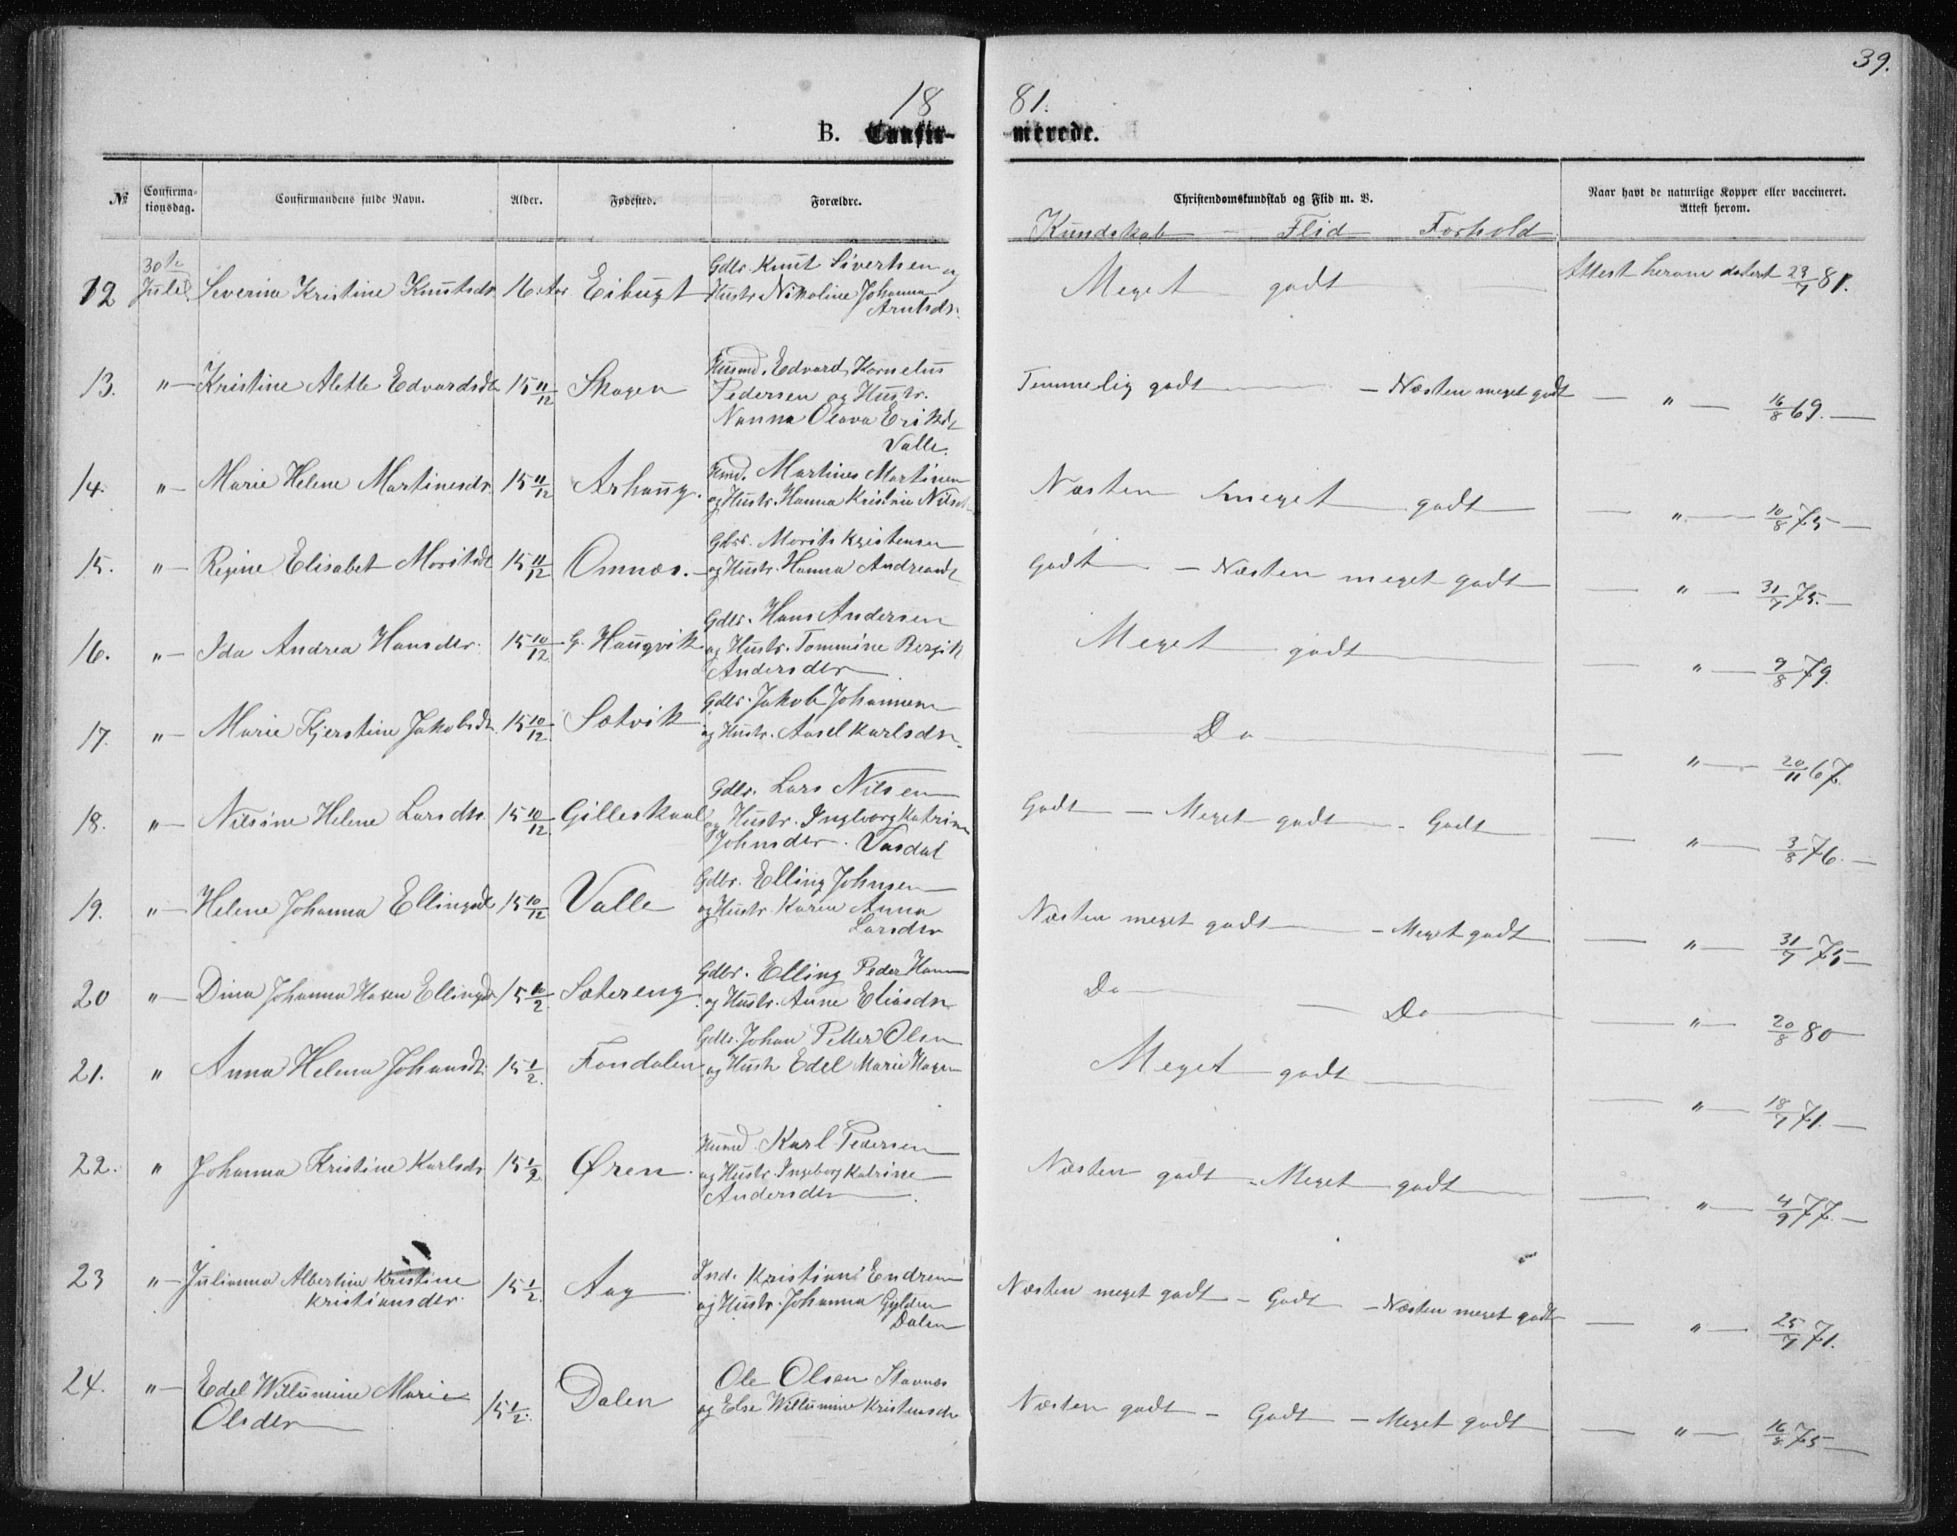 39.
18 81.
B. Confirmerede.
№ Confirmationsdag. Confirmandens fulde Navn. Alder. Fødested. Forældre. Christendomskundskab og Flid m. V. Naar havt de naturlige Kopper eller vaccineret. Attest herom.
Kundskab – Flid – Forhold
12 30te Juli Severina Kristine Knutsdr. 16 Aar Eibugt Gdbr. Knut Sivertsen og
Hustr. Nikoline Johanna
Arntsdr. Meget godt Attest herom datert 23/7 81.
13. " Kristine Alette Edvardsdt 15 11/12 Skogen Husmd. Edvard Kornelius
Pedersen og Hustr.
Nanna Olava Eriksdt
Valle. Temmelig godt – Næsten meget godt – " – 16/8 69.
14. " Marie Helene Martinesdr. 15 11/12 Arhaug. Hmd. Martines Martinsen
og Hustr. Hanna Kristine Nilsdt Næsten meget godt – " – 10/8 75
15. " Regine Elisabet Moritsdt 15 11/12 Omnæs. Gdbr. Morits Kristensen
og Hustr. Hanna Andreasdt Godt – Næsten meget godt – " – 31/7 75.
16. " Ida Andrea Hansdtr. 15 10/12 G. Haugvik Gdbr. Hans Andersen
og Hustr. Tommine Bergit
Andersdtr Meget godt – " – 9/8 79.
17. " Marie Kjerstine Jakobsdt. 15 10/12 Sætvik Gdbr. Jakob Johannesen
og Hustr. Aasel Karlsdtr. Do – " – 20/11 67.
18. " Nilsine Helene Larsdtr. 15 10/12 Gilleskaal Gdbr. Lars Nilsen
og Hustr. Ingeborg Katrine
Johnsdtr. Vasdal Godt – Meget godt – Godt – " – 3/8 76.
19. " Helene Johanna Ellingsdt 15 10/12 Valle Gdbr. Elling Johnsen
og Hustr. Karen Anna
Larsdtr Næsten meget godt – Meget godt – " – 31/7 75
20 " Dina Johanna Hasen Ellingsdt 15 1/2 Sætereng Gdbr. Elling Peder Hansen
og Hustr. Anne Eliasdtr Do – Do – " – 20/8 80
21. " Anna Helena Johansdt. 15 1/2. Fondalen Gdbr. Johan Petter Olsen
og Hustr Edel Marie Hagen Meget godt – " – 18/7 71.
22. " Johanna Kristine Karlsdr 15 1/2 Øren. Husmd. Karl Pedersen
og Hustr. Ingeborg Katrine
Andersdtr Næsten godt – Meget godt – " – 4/9 77.
23 " Julianna Albertine Kristine
Kristiansdtr. 15 1/2. Aag Ind. Kristian Endresen
og Hustr. Johanna Gylden
Dalen Næsten meget godt – Godt – Næsten meget godt – " – 25/7 71.
24. " Edel Willumine Marie
Olsdtr 15 1/2. Dalen Ole Olsen Stavnes
og Else Willumine Kristensdtr Næsten godt – Godt – Meget godt – " – 16/8 75